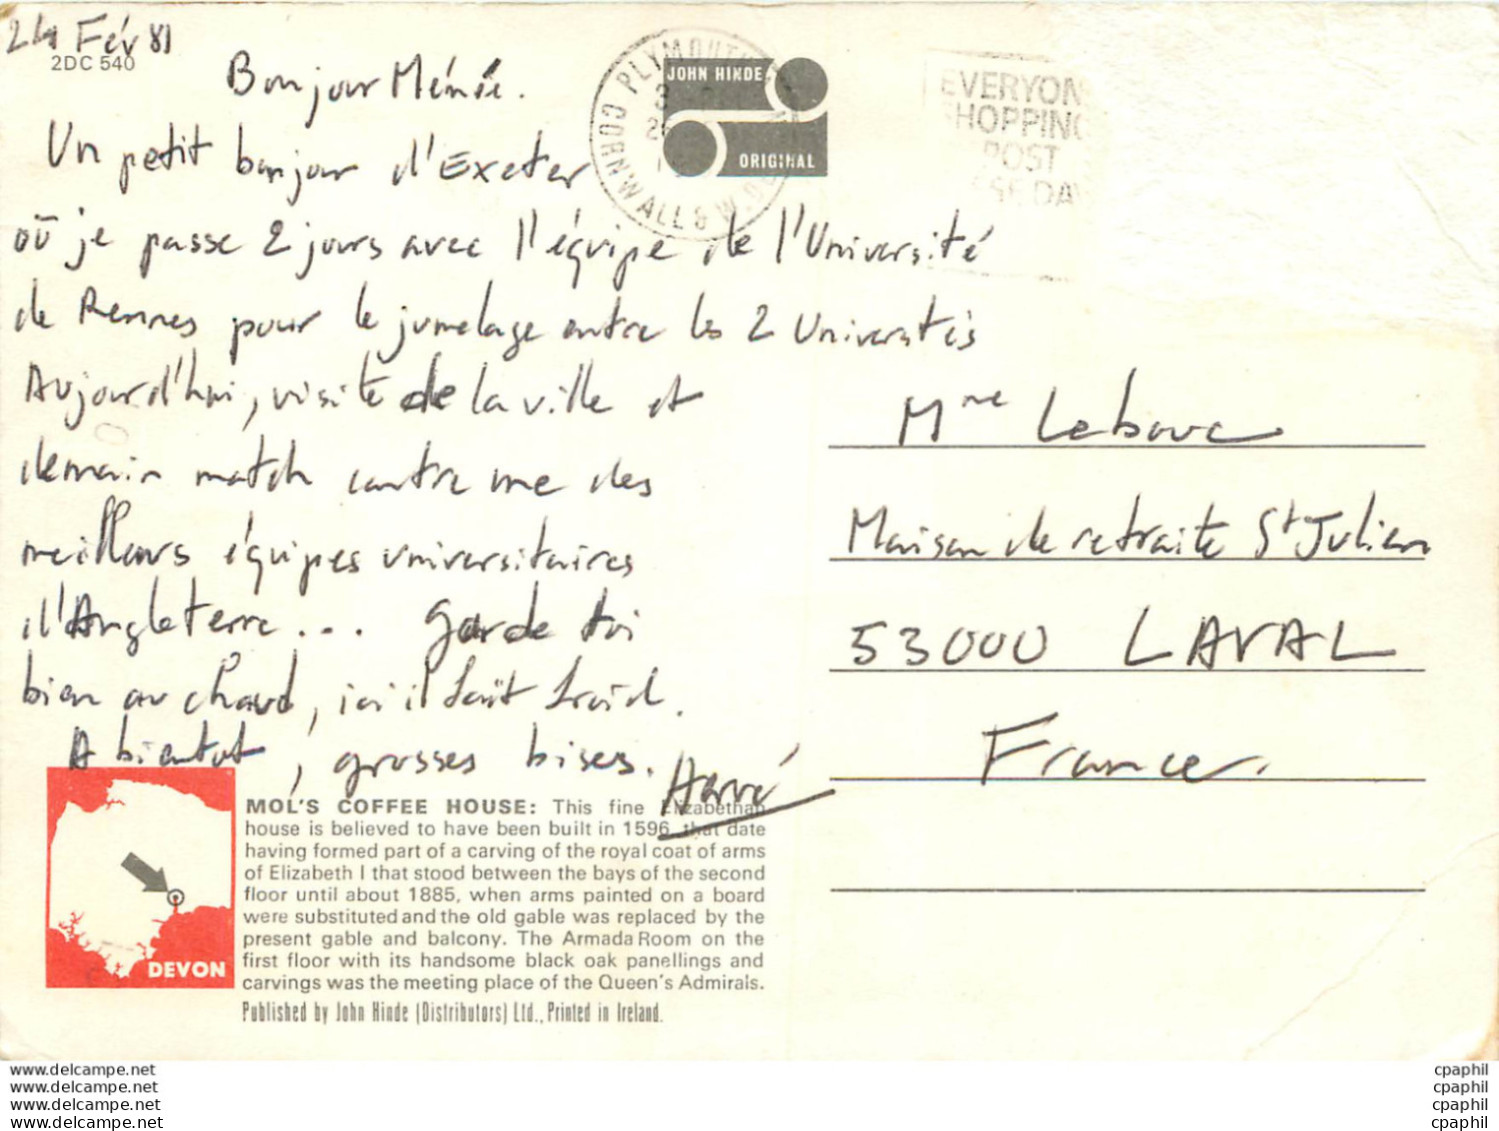 24 Fév 81
2DC 540
Bonjour Mémé.
Un petit bonjour d'Exeter
où je passe 2 jours avec l'équipe de l'Université
de Rennes pour le jumelage entre les 2 Universités
Aujourd'hui, visite de la ville et
demain match contre une des
meilleurs équipes universitaires
d'Angleterre... Garde toi
bien au chaud, ici il fait froid.
A bientôt, grosses bises. Hervé
JOHN HINDE
ORIGINAL
PLYMOUTH
CORNWALL & W.
EVERYON
SHOPPING
POST
DAY
Mme Lebouc
Maison de retraite St Julien
53000 LAVAL
France.
DEVON
MOL'S COFFEE HOUSE: This fine Elizabethan
house is believed to have been built in 1596, that date
having formed part of a carving of the royal coat of arms
of Elizabeth I that stood between the bays of the second
floor until about 1885, when arms painted on a board
were substituted and the old gable was replaced by the
present gable and balcony. The Armada Room on the
first floor with its handsome black oak panellings and
carvings was the meeting place of the Queen's Admirals.
Published by John Hinde (Distributors) Ltd., Printed in Ireland.
www.delcampe.net
www.delcampe.net
www.delcampe.net
www.delcampe.net
cpaphil
cpaphil
cpaphil
cpaphil